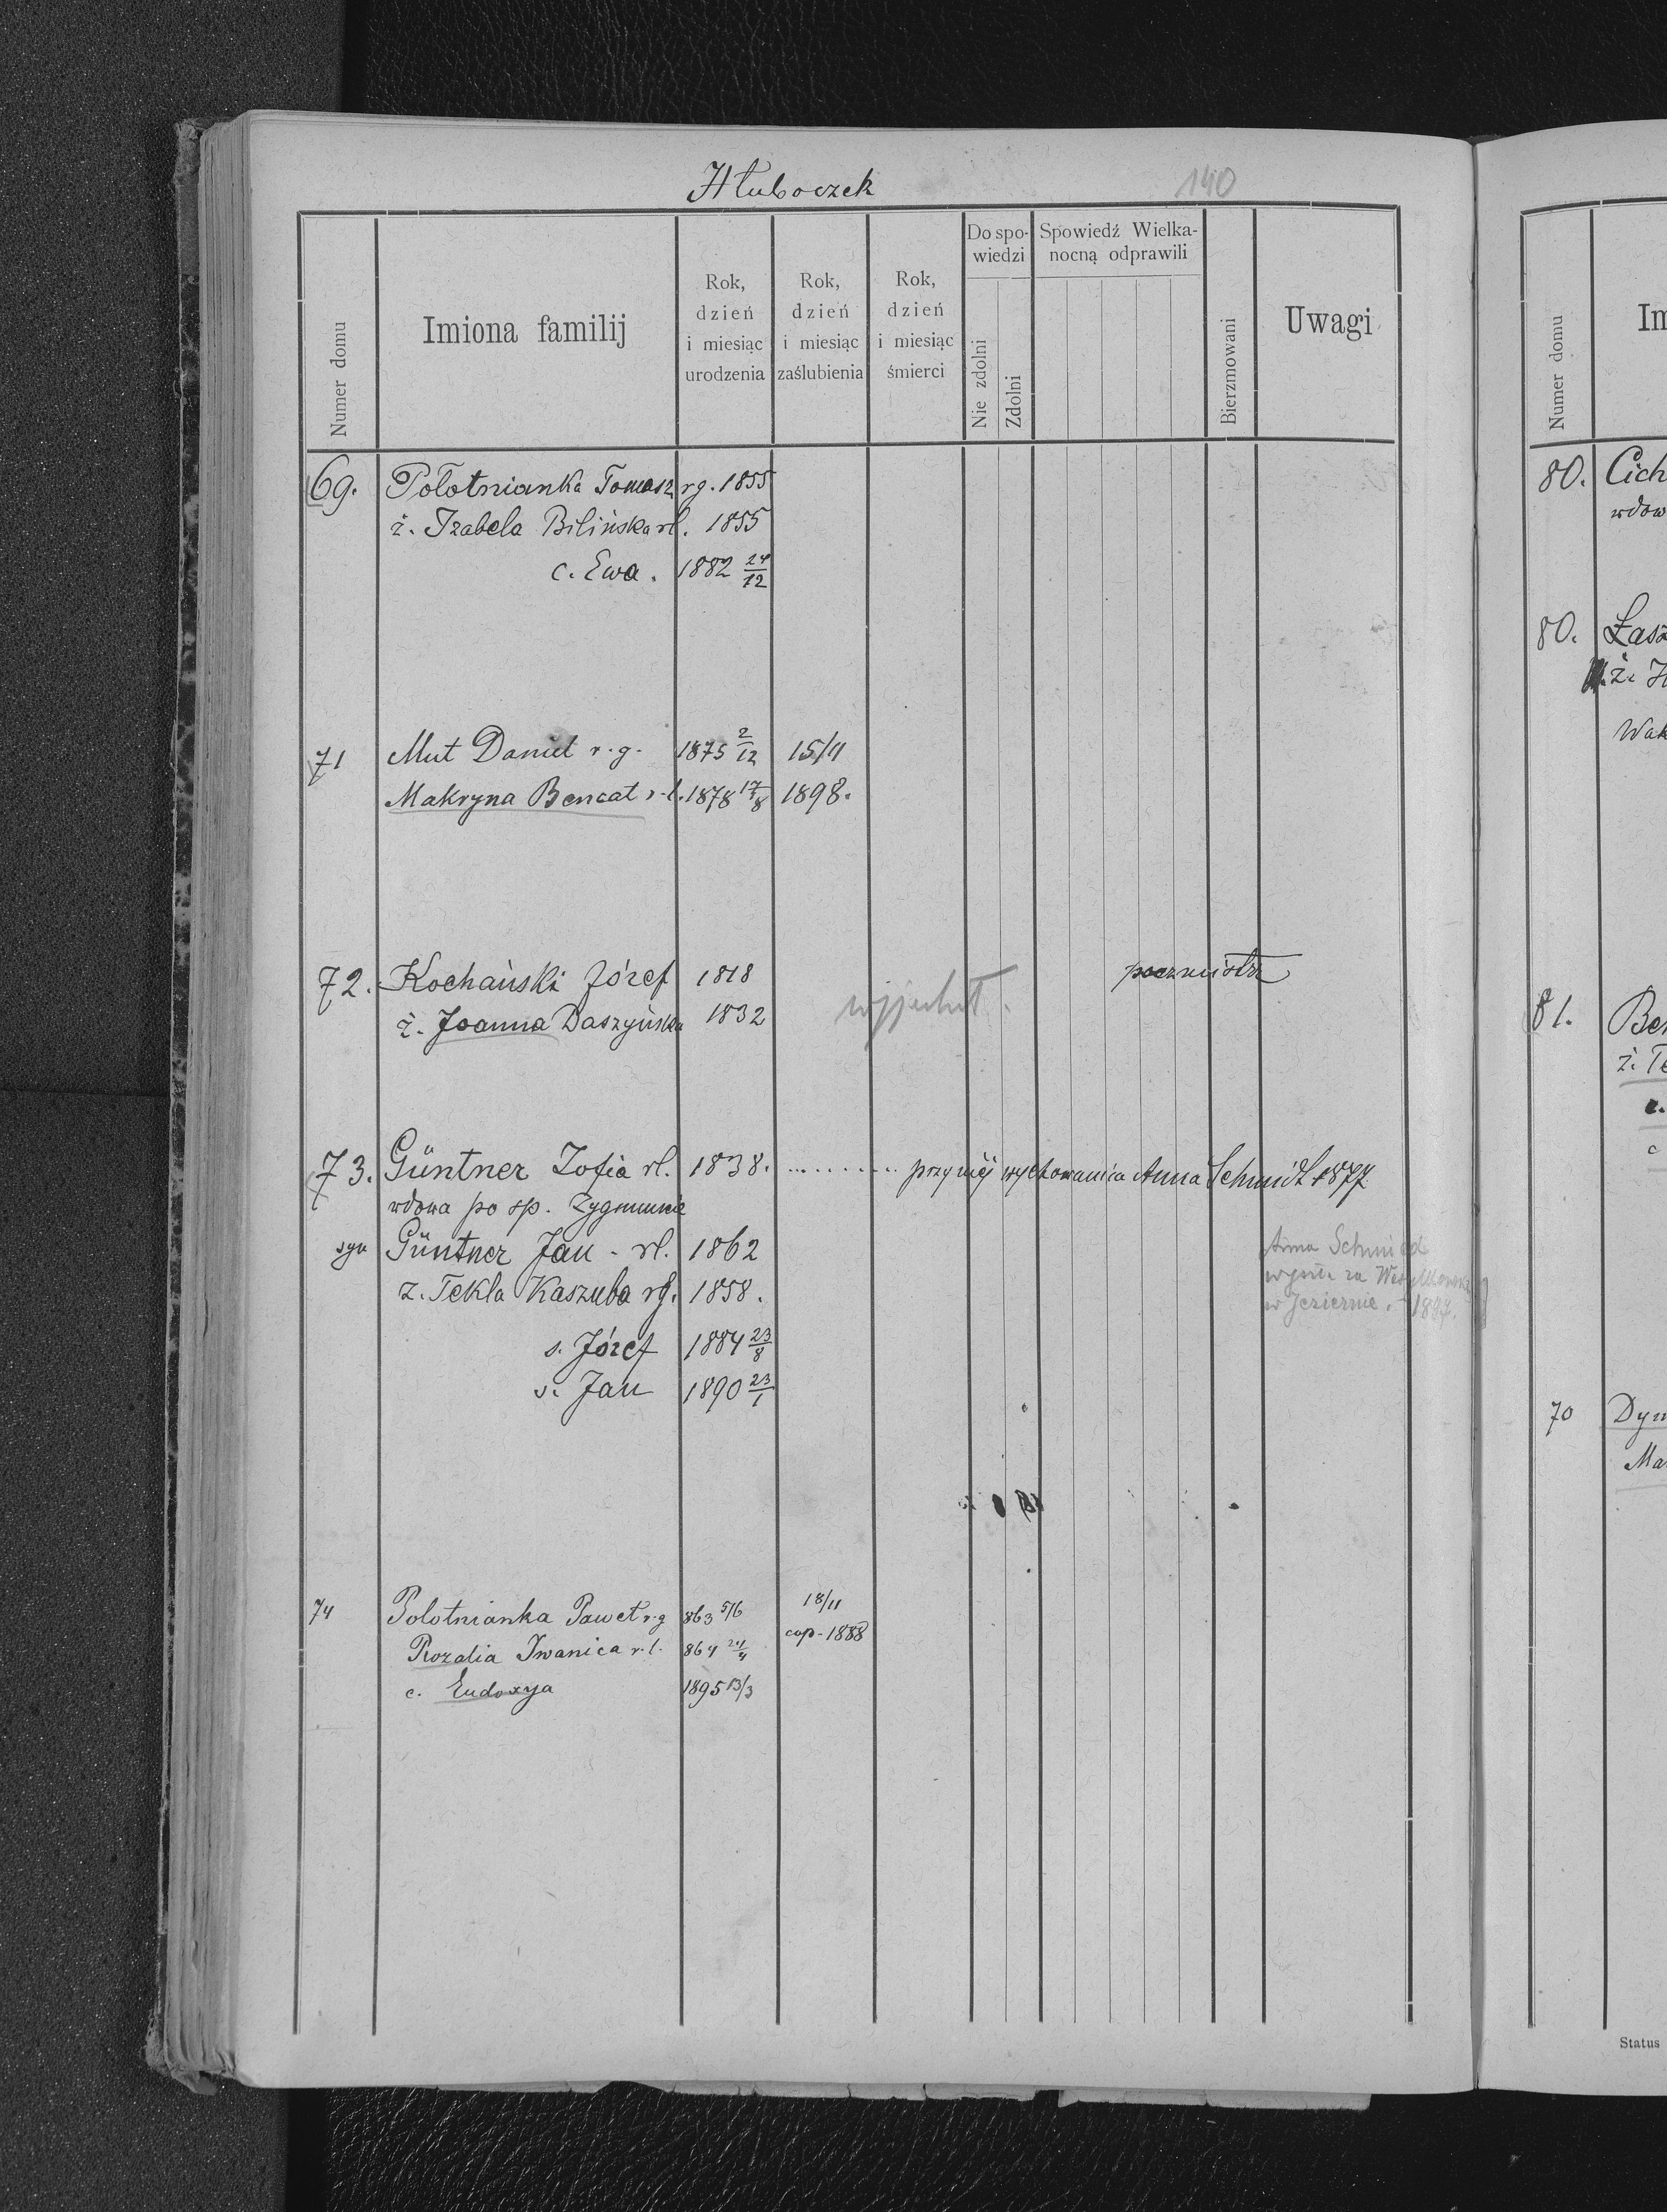 Hłuboczek 140
Numer domu
Imiona familij
Rok, dzień i miesiąc urodzenia
Rok, dzień i miesiąc zaślubienia
Rok, dzień i miesiąc śmierci
Do spo-wiedzi
Nie zdolni
Zdolni
Spowiedź Wielka-nocną odprawili
Bierzmowani
Uwagi
69. Połotnianka Tomasz rg. 1855
ż. Izabela Bilińska rl. 1855
c. Ewa. 1882 24/12
71 Mut Daniel r.g. 1875 2/12 15/11
Makryna Bencat r.l. 1878 17/8 1898.
72. Kochański Józef 1818 wyjechał. poczmistrz
ż. Joanna Daszyńska 1832
73. Güntner Zofia rl. 1838. .......... przy niej wychowanica Anna Schmidt 1877
wdowa po sp. Zygmuncie
syn Güntner Jan - rl. 1862
ż. Tekla Kaszuba rg. 1858.
Anna Schmidt
wyszła za
w Jeziernie. - 1897.
s. Józef 1884 23/8
s. Jan 1890 23/1
74 Połotnianka Paweł r.g 863 5/6 18/11
Rozalia Iwanica r.l. 864 24/4 cop. 1888
c. Eudoxya 1895 13/3
Numer domu
Im
80. Cich
wdow
80. Łasz
ż. H
Wak
81. Ben
ż. Te
c.
c
70 Dym
Ma
Status